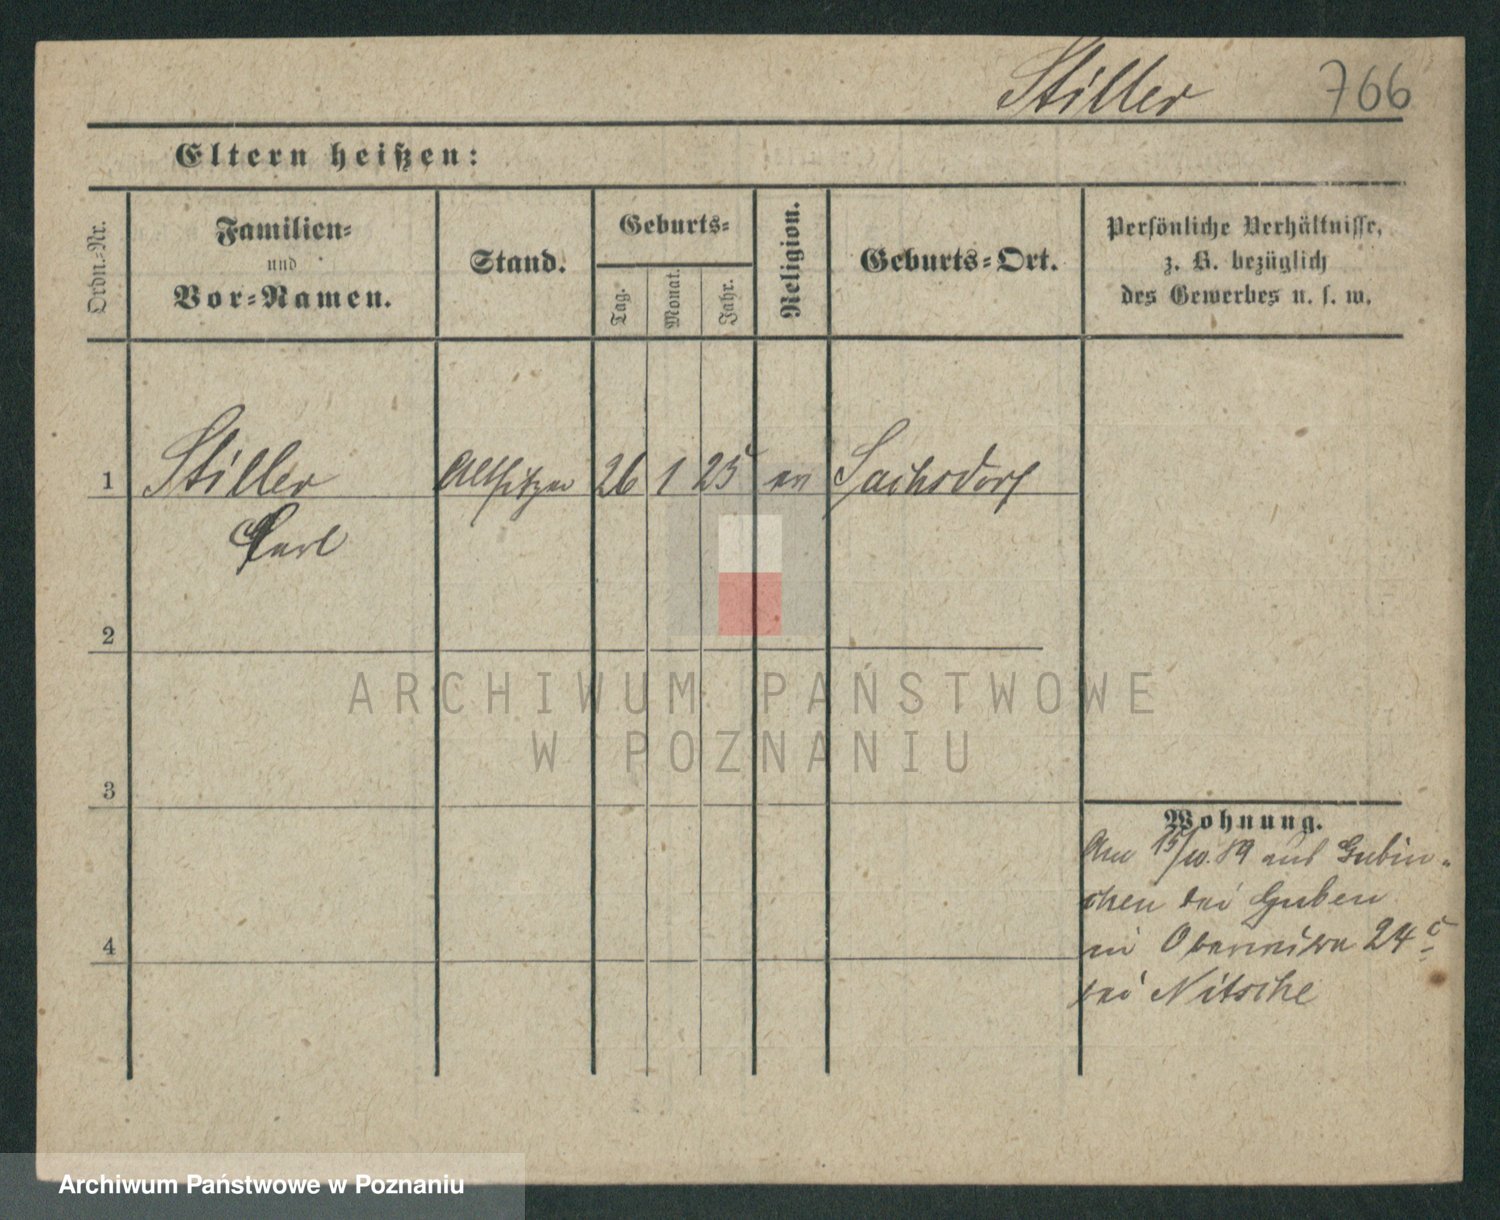 Stiller 766
Eltern heißen:
Ordn.-Nr.
Familien-
und
Vor-Namen.
Stand.
Geburts-
Tag.
Monat.
Jahr.
Religion.
Geburts-Ort.
Persönliche Verhältnisse,
z. B. bezüglich
des Gewerbes u. s. w.
1 Stiller Altsitzer 26 1 25 ev Sachsdorf
Carl
2
3
4
Wohnung.
Am 15/10. 89 aus Gubin-
chen bei Guben
in 24 c
bei Nitsche
ARCHIWUM PAŃSTWOWE
W POZNANIU
Archiwum Państwowe w Poznaniu